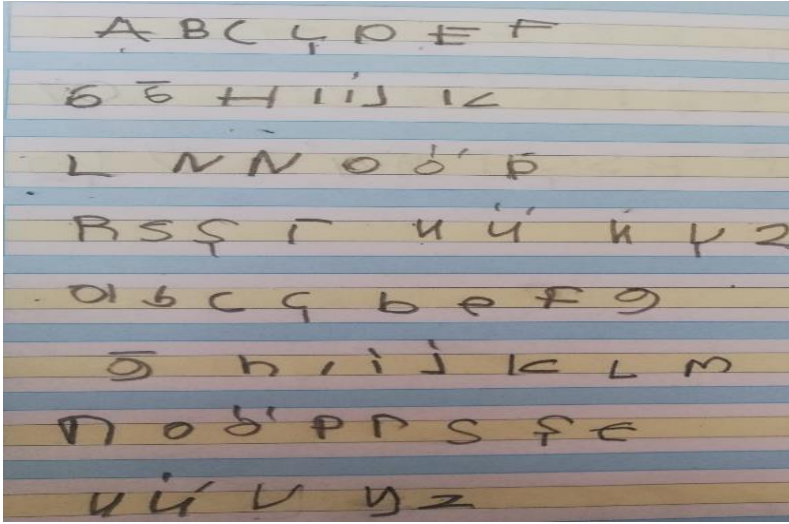 A B C Ç D E F
G Ğ H I İ J K
L N N O Ö P
R S Ş T U Ü V Y Z
a b c ç b e F g
ğ h ı i j k L m
n o ö p r s ş t
u ü v y z